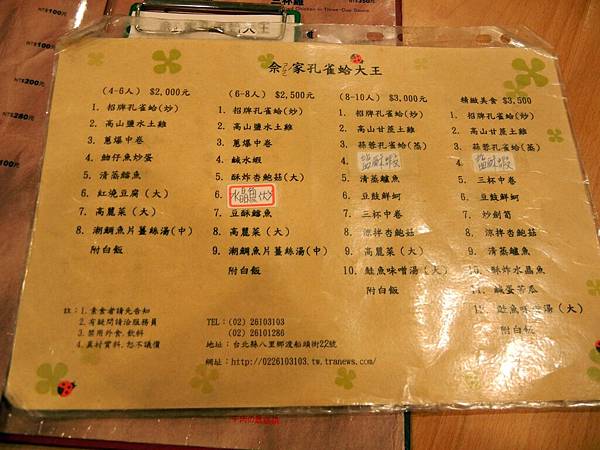 三杯雞
NT$100
NT$100
NT$200
NT$280
大王
佘家孔雀蛤大王
(4-6人) $2,000元
1. 招牌孔雀蛤(炒)
2. 高山鹽水土雞
3. 蔥爆中卷
4. 魩仔魚炒蛋
5. 清蒸鱸魚
6. 紅燒豆腐(大)
7. 高麗菜(大)
8. 潮鯛魚片薑絲湯(中)
附白飯
(6-8人) $2,500元
1. 招牌孔雀蛤(炒)
2. 高山鹽水土雞
3. 蔥爆中卷
4. 鹹水蝦
5. 酥炸杏鮑菇(大)
6. 水晶魚(大)
7. 豆酥鱈魚
8. 高麗菜(大)
9. 潮鯛魚片薑絲湯(中)
附白飯
(8-10人) $3,000元
1. 招牌孔雀蛤(炒)
2. 高山甘蔗土雞
3. 蒜蓉孔雀蛤(蒸)
4. 鹽酥蝦
5. 清蒸鱸魚
6. 豆豉鮮蚵
7. 三杯中卷
8. 涼拌杏鮑菇
9. 高麗菜(大)
10. 鮭魚味噌湯(大)
附白飯
精緻美食 $3,500
1. 招牌孔雀蛤(炒)
2. 高山甘蔗土雞
3. 蒜蓉孔雀蛤(蒸)
4. 鹽酥蝦
5. 三杯中卷
6. 豆豉鮮蚵
7. 炒劍筍
8. 涼拌杏鮑菇
9. 清蒸鱸魚
10. 酥炸水晶魚
11. 鹹蛋苦瓜
12. 鮭魚味噌湯(大)
附白飯
註:1.素食者請先告知
2.有疑問請洽服務員
3.禁用外食.飲料
4.真材實料.恕不議價
TEL:(02) 26103103
(02) 26101286
地址:台北縣八里鄉渡船頭街22號
網址:http://0226103103.tw.tranews.com/